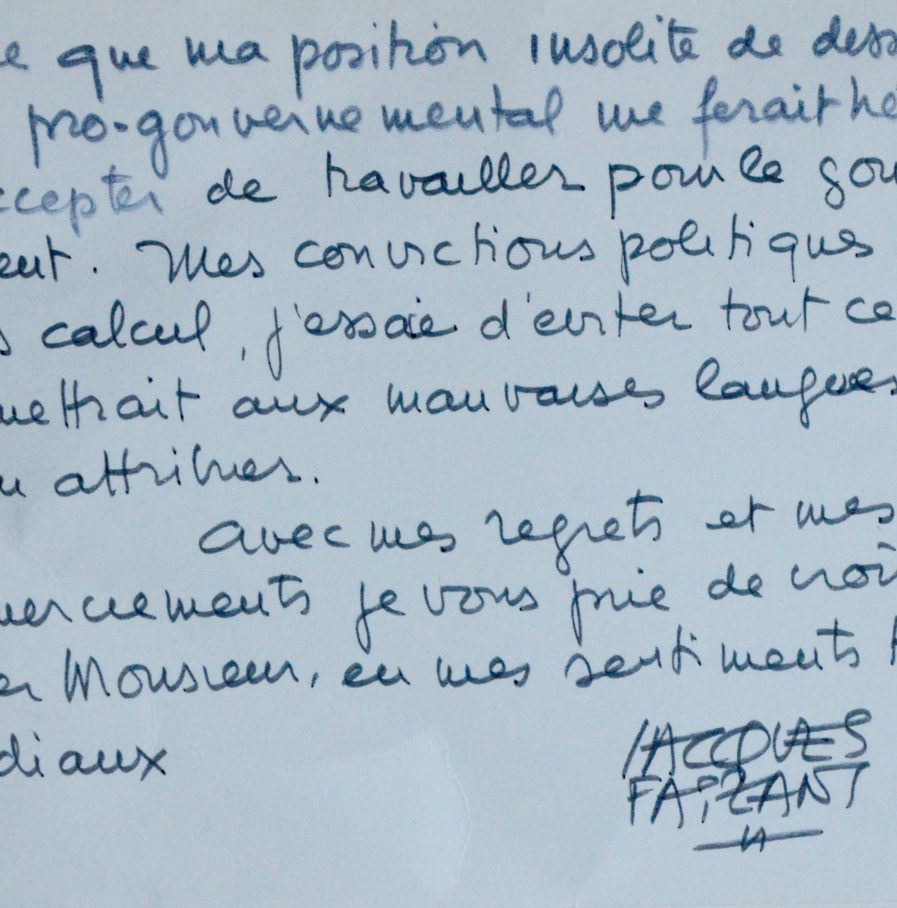 e que ma position insolite de dess
pro-gouvernemental me ferait hé
ccepter de travailler pour le gou
ent. Mes convictions politiques
s calcul, j'essaie d'eviter tout ce
mettrait aux mauvaises langues
n attribuer.
avec mes regrets et mes
merciements je vous prie de croi
er Monsieur, en mes sentiments t
diaux
JACQUES
FAIZANT